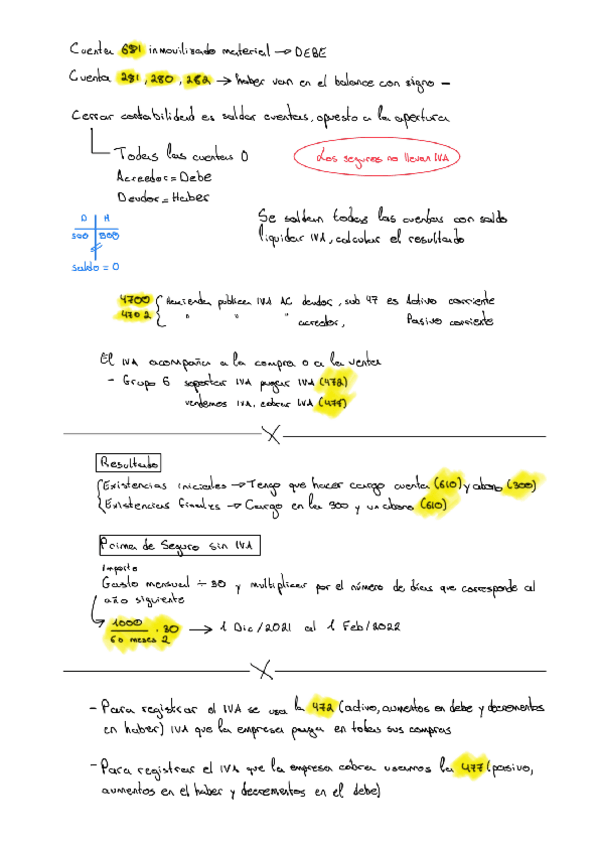 Cuenta 681 inmovilizado material → DEBE
Cuenta 281, 280, 282 → haber van en el balance con signo -
Cerrar contabilidad es saldar cuentas, opuesto a la apertura
Todas las cuentas 0
Los seguros no llevan IVA
Acreedor = Debe
Deudor = Haber
D H
500 500
saldo = 0
Se saldan todas las cuentas con saldo
liquidar IVA, calcular el resultado
4700 Hacienda publica IVA AC deudor, sub 47 es Activo corriente
4702 " " " acreedor, Pasivo corriente
El IVA acompaña a la compra o a la venta
- Grupo 6 soportar IVA pagar IVA (472)
vendemos IVA, cobrar IVA (477)
Resultado
Existencias iniciales → Tengo que hacer cargo cuenta (610) y abono (300)
Existencias finales → Cargo en la 300 y un abono (610)
Prima de Seguro sin IVA
Importe
Gasto mensual ÷ 30 y multiplicar por el número de días que corresponde al
año siguiente
1000 / 60 meses 2 · 30 → 1 Dic/2021 al 1 Feb/2022
- Para registrar el IVA se usa la 472 (activo, aumentos en debe y decrementos
en haber) IVA que la empresa paga en todas sus compras
- Para registrar el IVA que la empresa cobra usamos la 477 (pasivo,
aumentos en el haber y decrementos en el debe)